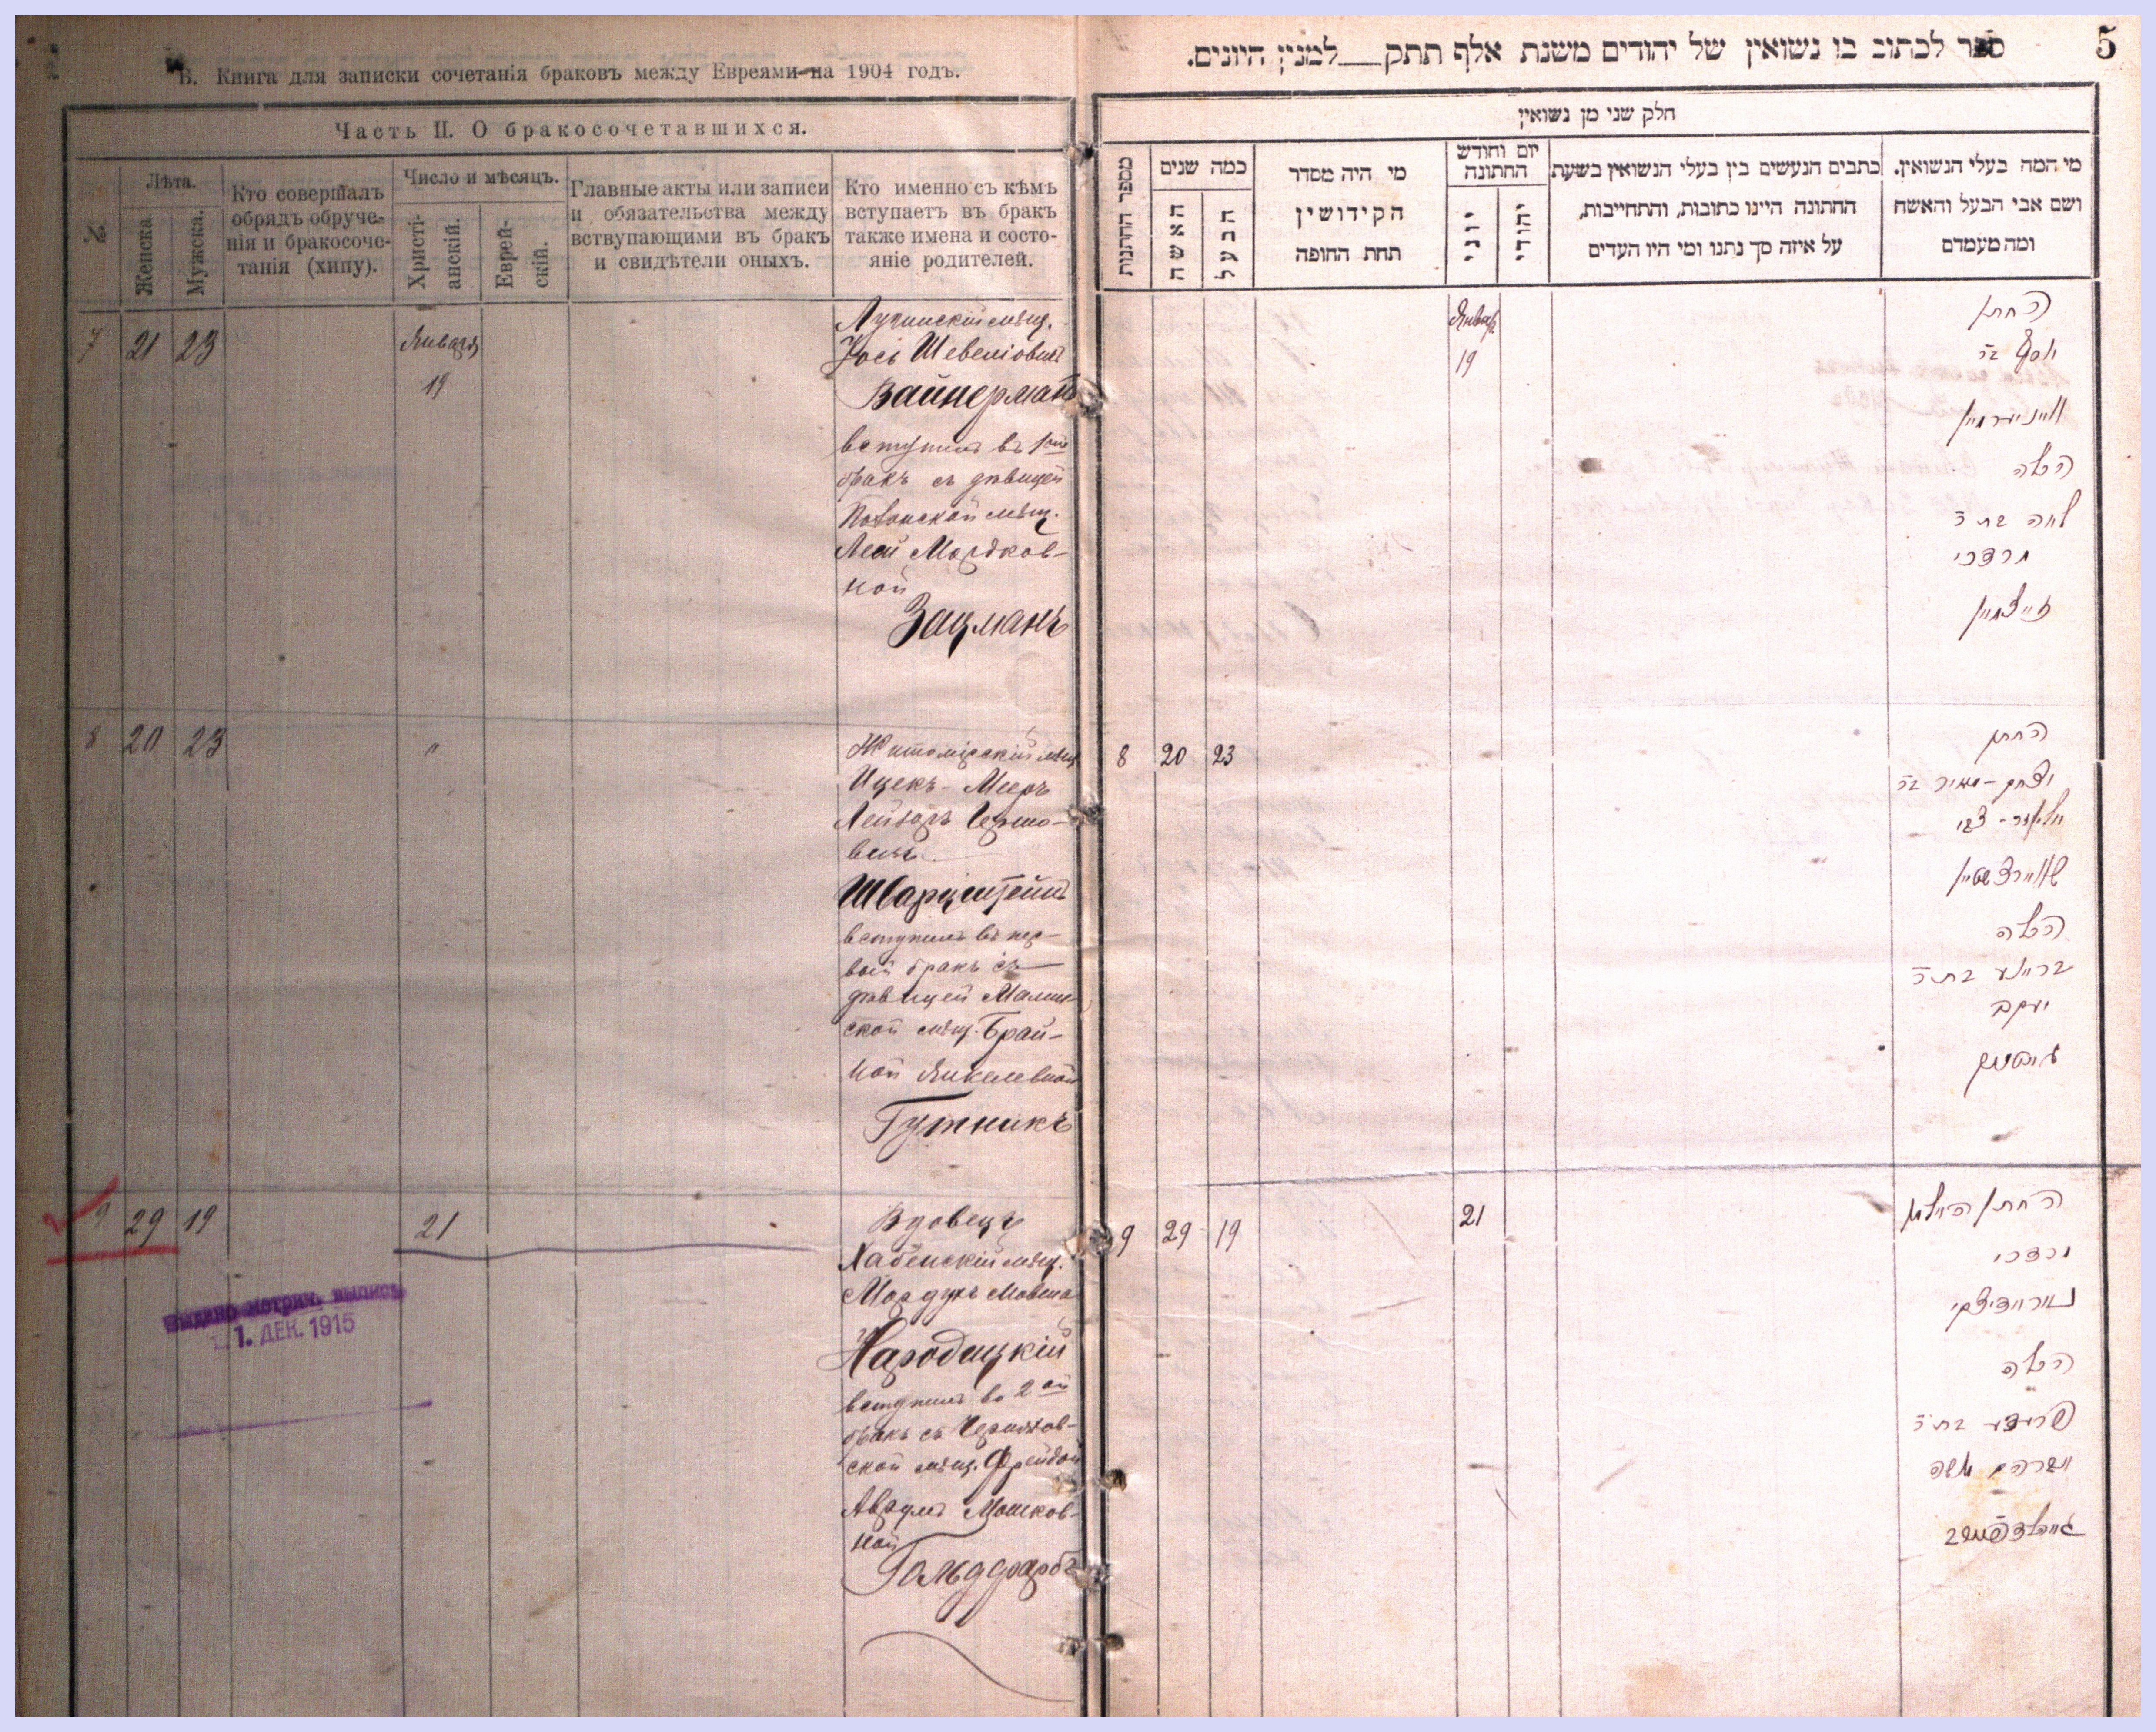 Б. Книга для записки сочетанія браковъ между Евреями на 1904 годъ.
Часть II. О бракосочетавшихся.
№
Лѣта.
Женска.
Мужска.
Кто совершалъ
обрядъ обруче-
нія и бракосоче-
танія (хипу).
Число и мѣсяцъ.
Христі-
анскій.
Еврей-
скій.
Главные акты или записи
и обязательства между
вствупающими въ бракъ
и свидѣтели оныхъ.
Кто именно съ кѣмъ
вступаетъ въ бракъ
также имена и состо-
яніе родителей.
7 21 23
Января
19
Лугинскій мѣщ.
Іось Шевелiовичъ
Вайнерманъ
вступилъ въ 1ый
бракъ съ дѣвицей
мѣщ.
Леей Мордков-
ной
Зацманъ
8 20 23 "
Житомірскій мѣщ
Ицекъ-Мееръ
Лейзоръ Гершо-
вичъ
Шварцштейнъ
вступилъ въ пер-
вый бракъ съ
дѣвицей Малин-
ской мѣщ. Брай-
ной Янкелевной
Гутникъ
9 29 19 21
Вдовецъ
Хабенскій мѣщ.
Мордухъ Мовша
Народицкій
вступилъ во 2ой
бракъ съ Черняхов-
ской мѣщ. Фрейдой
Аврумъ Мошков-
ной
Гольдфарбъ
Выдано метрич. выпись
1. ДЕК. 1915
5
ספר לכתוב בו נשואין של יהודים משנת אלף תתק__למנין היונים.
חלק שני מן נשואין
מספר החתונות
כמה שנים
האשה
הבעל
מי היה מסדר
הקידושין
תחת החופה
יום וחודש
החתונה
יוני
יהודי
כתבים הנעשים בין בעלי הנשואין בשעת
החתונה היינו כתובות, והתחייבות,
על איזה סך נתנו ומי היו העדים
מי המה בעלי הנשואין.
ושם אבי הבעל והאשה
ומה מעמדם
Январ.
19
החתן
יוסף בר
וויינערמאן
הכלה
לאה בת ר
מרדכי
זייצמאן
8 20 23
החתן
יצחק-מאיר בר
אליעזר-צבי
שווארצשטיין
הכלה
בריינע בת ר
יעקב
גוטניק
9 29 19
21
החתן האלמן
מרדכי
נאראדיצקי
הכלה
פריידע בת ר
אברהם משה
גאלדפארב